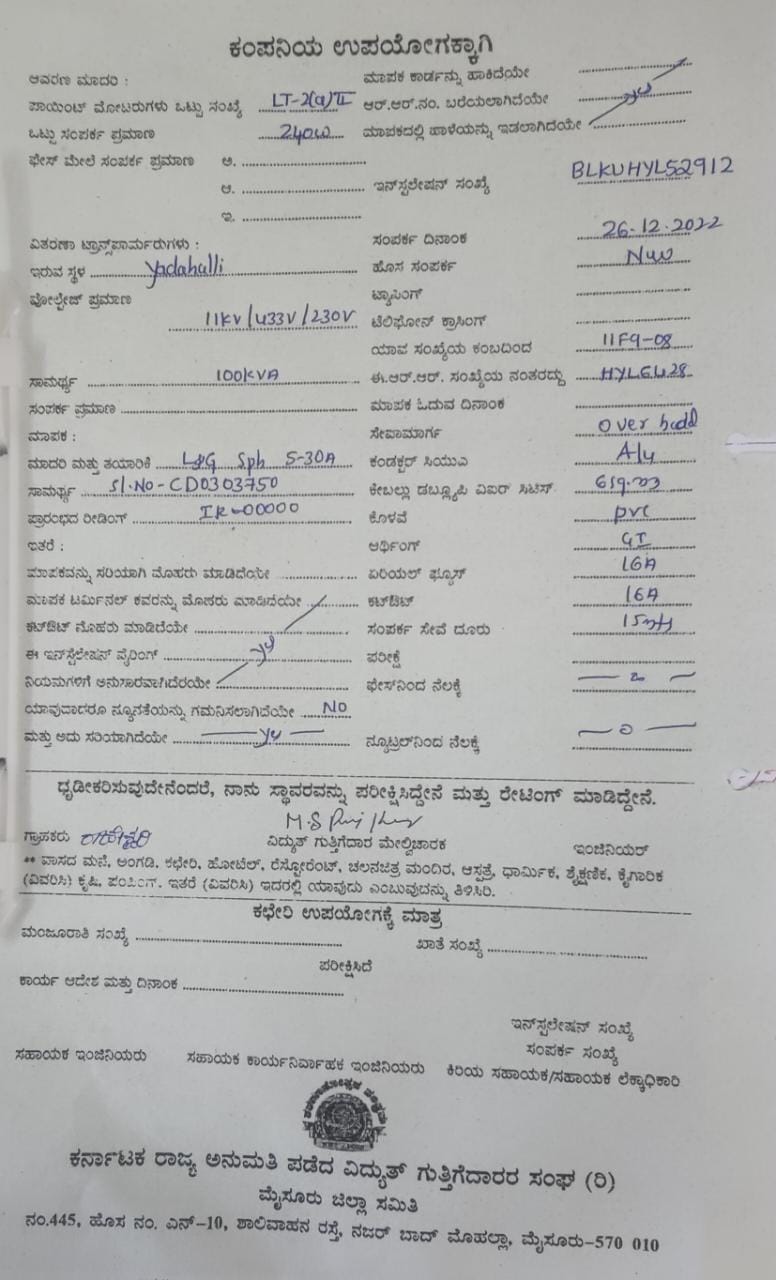 ಕಂಪನಿಯ ಉಪಯೋಗಕ್ಕಾಗಿ
ಆವರಣ ಮಾದರಿ : ಮಾಪಕ ಕಾರ್ಡನ್ನು ಹಾಕಿದೆಯೇ
ಪಾಯಿಂಟ್ ಮೋಟರುಗಳು ಒಟ್ಟು ಸಂಖ್ಯೆ LT-2(a)II ಆರ್.ಆರ್.ನಂ. ಬರೆಯಲಾಗಿದೆಯೇ
ಒಟ್ಟು ಸಂಪರ್ಕ ಪ್ರಮಾಣ 240W ಮಾಪಕದಲ್ಲಿ ಹಾಳೆಯನ್ನು ಇಡಲಾಗಿದೆಯೇ
ಫೇಸ್ ಮೇಲೆ ಸಂಪರ್ಕ ಪ್ರಮಾಣ ಅ.
ಆ. ಇನ್‌ಸ್ಟಲೇಷನ್ ಸಂಖ್ಯೆ BLKUHYL52912
ಇ.
ವಿತರಣಾ ಟ್ರಾನ್ಸ್‌ಪಾರ್ಮರುಗಳು : ಸಂಪರ್ಕ ದಿನಾಂಕ 26-12-2022
ಇರುವ ಸ್ಥಳ Yadahalli ಹೊಸ ಸಂಪರ್ಕ
ವೋಲ್ಟೇಜ್ ಪ್ರಮಾಣ ಟ್ಯಾಪಿಂಗ್
11KV/433V/230V ಟೆಲಿಫೋನ್ ಕ್ರಾಸಿಂಗ್
ಯಾವ ಸಂಖ್ಯೆಯ ಕಂಬದಿಂದ 11F9-08
ಸಾಮರ್ಥ್ಯ 100KVA ಈ.ಆರ್.ಆರ್. ಸಂಖ್ಯೆಯ ನಂತರದ್ದು
ಸಂಪರ್ಕ ಪ್ರಮಾಣ ಮಾಪಕ ಓದುವ ದಿನಾಂಕ
ಮಾಪಕ : ಸೇವಾಮಾರ್ಗ over
ಮಾದರಿ ಮತ್ತು ತಯಾರಿಕೆ L&G Sph 5-30A ಕಂಡಕ್ಟರ್ ಸಿಯುಎ Aly
ಸಾಮರ್ಥ್ಯ Sl.No-CD0303750 ಕೇಬಲ್ಲು ಡಬ್ಲ್ಯೂಪಿ ವಿಐರ್ ಸಿಟಿಸ್.
ಪ್ರಾರಂಭದ ರೀಡಿಂಗ್ IR-00000 ಕೊಳವೆ pvc
ಇತರೆ : ಆರ್ಥಿಂಗ್ GI
ಮಾಪಕವನ್ನು ಸರಿಯಾಗಿ ಮೊಹರು ಮಾಡಿದೆಯೇ ಏರಿಯಲ್ ಫ್ಯೂಸ್ 16A
ಮಾಪಕ ಟರ್ಮಿನಲ್ ಕವರನ್ನು ಮೊಹರು ಮಾಡಿದೆಯೇ ಕಟ್‌ಔಟ್ 16A
ಕಟ್‌ಔಟ್ ಮೊಹರು ಮಾಡಿದೆಯೇ ಸಂಪರ್ಕ ಸೇವೆ ದೂರು
ಈ ಇನ್‌ಸ್ಟೆಲೇಷನ್ ವೈರಿಂಗ್ ಪರೀಕ್ಷೆ
ನಿಯಮಗಳಿಗೆ ಅನುಸಾರವಾಗಿದೆರಯೇ ಫೇಸ್‌ನಿಂದ ನೆಲಕ್ಕೆ
ಯಾವುದಾದರೂ ನ್ಯೂನತೆಯನ್ನು ಗಮನಿಸಲಾಗಿದೆಯೇ NO
ಮತ್ತು ಅದು ಸರಿಯಾಗಿದೆಯೇ ನ್ಯೂಟ್ರಲ್‌ನಿಂದ ನೆಲಕ್ಕೆ
ಧೃಡೀಕರಿಸುವುದೇನೆಂದರೆ, ನಾನು ಸ್ಥಾವರವನ್ನು ಪರೀಕ್ಷಿಸಿದ್ದೇನೆ ಮತ್ತು ರೇಟಿಂಗ್ ಮಾಡಿದ್ದೇನೆ.
ಗ್ರಾಹಕರು ವಿದ್ಯುತ್ ಗುತ್ತಿಗೆದಾರ ಮೇಲ್ವಿಚಾರಕ ಇಂಜಿನಿಯರ್
** ವಾಸದ ಮನೆ, ಅಂಗಡಿ, ಕಛೇರಿ, ಹೋಟೆಲ್, ರೆಸ್ಟೋರೆಂಟ್, ಚಲನಚಿತ್ರ ಮಂದಿರ, ಆಸ್ಪತ್ರೆ, ಧಾರ್ಮಿಕ, ಶೈಕ್ಷಣಿಕ, ಕೈಗಾರಿಕ
(ವಿವರಿಸಿ) ಕೃಷಿ, ಪಂಪಿಂಗ್. ಇತರೆ (ವಿವರಿಸಿ) ಇದರಲ್ಲಿ ಯಾವುದು ಎಂಬುವುದನ್ನು ತಿಳಿಸಿರಿ.
ಕಛೇರಿ ಉಪಯೋಗಕ್ಕೆ ಮಾತ್ರ
ಮಂಜೂರಾತಿ ಸಂಖ್ಯೆ ಖಾತೆ ಸಂಖ್ಯೆ
ಪರೀಕ್ಷಿಸಿದೆ
ಕಾರ್ಯ ಆದೇಶ ಮತ್ತು ದಿನಾಂಕ
ಇನ್‌ಸ್ಟಲೇಷನ್ ಸಂಖ್ಯೆ
ಸಂಪರ್ಕ ಸಂಖ್ಯೆ
ಸಹಾಯಕ ಇಂಜಿನಿಯರು ಸಹಾಯಕ ಕಾರ್ಯನಿರ್ವಾಹಕ ಇಂಜಿನಿಯರು ಕಿರಿಯ ಸಹಾಯಕ/ಸಹಾಯಕ ಲೆಕ್ಕಾಧಿಕಾರಿ
ಕರ್ನಾಟಕ ರಾಜ್ಯ ಅನುಮತಿ ಪಡೆದ ವಿದ್ಯುತ್ ಗುತ್ತಿಗೆದಾರರ ಸಂಘ (ರಿ)
ಮೈಸೂರು ಜಿಲ್ಲಾ ಸಮಿತಿ
ನಂ.445, ಹೊಸ ನಂ. ಎನ್-10, ಶಾಲಿವಾಹನ ರಸ್ತೆ, ನಜರ್ ಬಾದ್ ಮೊಹಲ್ಲಾ, ಮೈಸೂರು-570 010